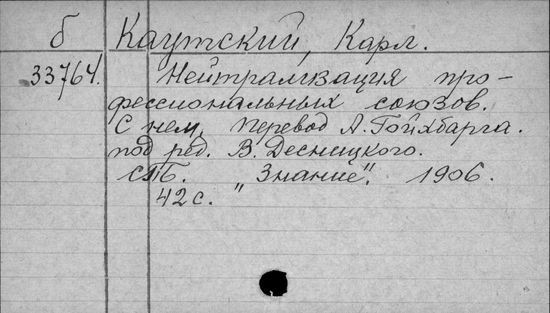 б Каутский, Карл.
33764. Нейтрализация про-
фессиональных союзов.
С нем. перевод А. Гойхбарга.
под ред. В. Десницкого.
СПБ. "Знание". 1906.
42 с.